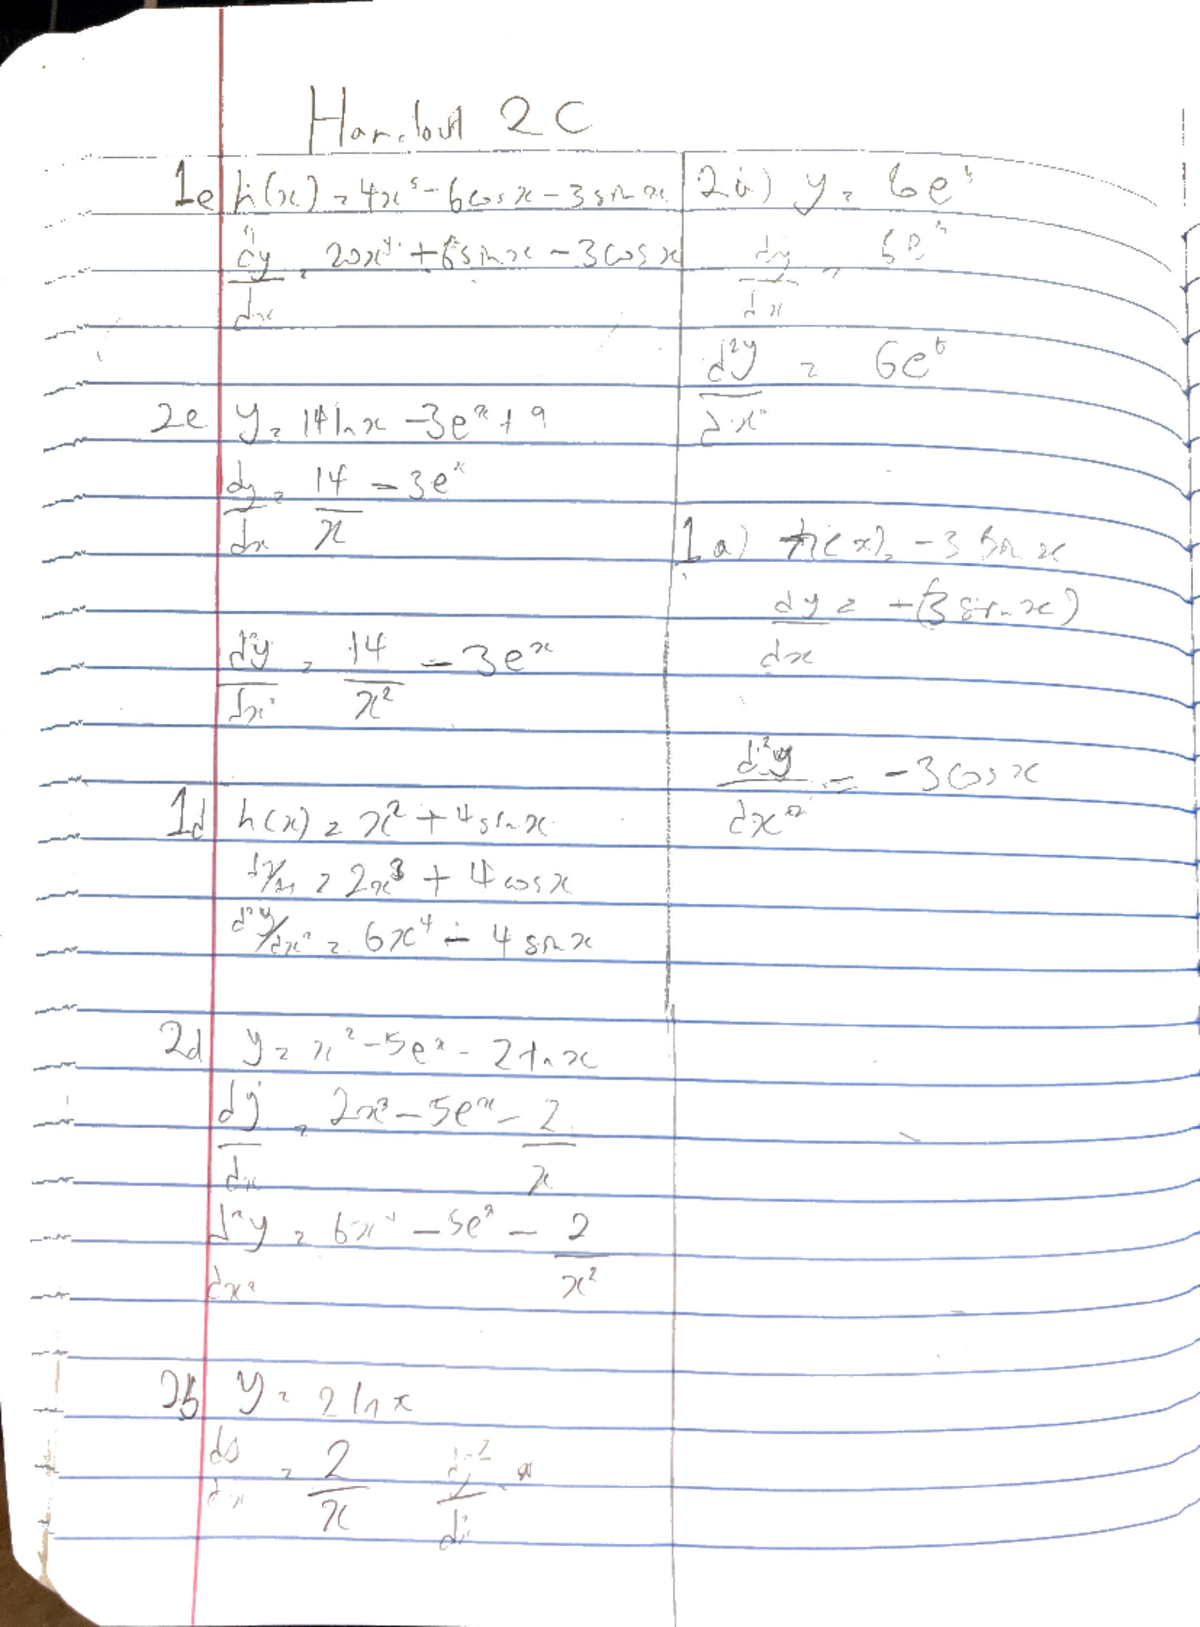 Handout 2C
1e h(x) = 4x⁵ - 6cosx - 3sinx
dy/dx = 20x⁴ + 6sinx - 3cosx
2e y = 14lnx - 3eˣ + 9
dy/dx = 14/x - 3eˣ
d²y/dx² = 14/x² - 3eˣ
1d h(x) = x² + 4sinx
dy/dx = 2x³ + 4cosx
d²y/dx² = 6x⁴ - 4sinx
2d y = x² - 5eˣ - 2lnx
dy/dx = 2x³ - 5eˣ - 2/x
d²y/dx² = 6x⁴ - 5eˣ - 2/x²
2b y = 2lnx
dy/dx = 2/x
y = 6eˣ
dy/dx = 6eˣ
d²y/dx² = 6eˣ
1a) h(x) = -3sinx
dy/dx = +(3sinx)
d²y/dx² = -3cosx